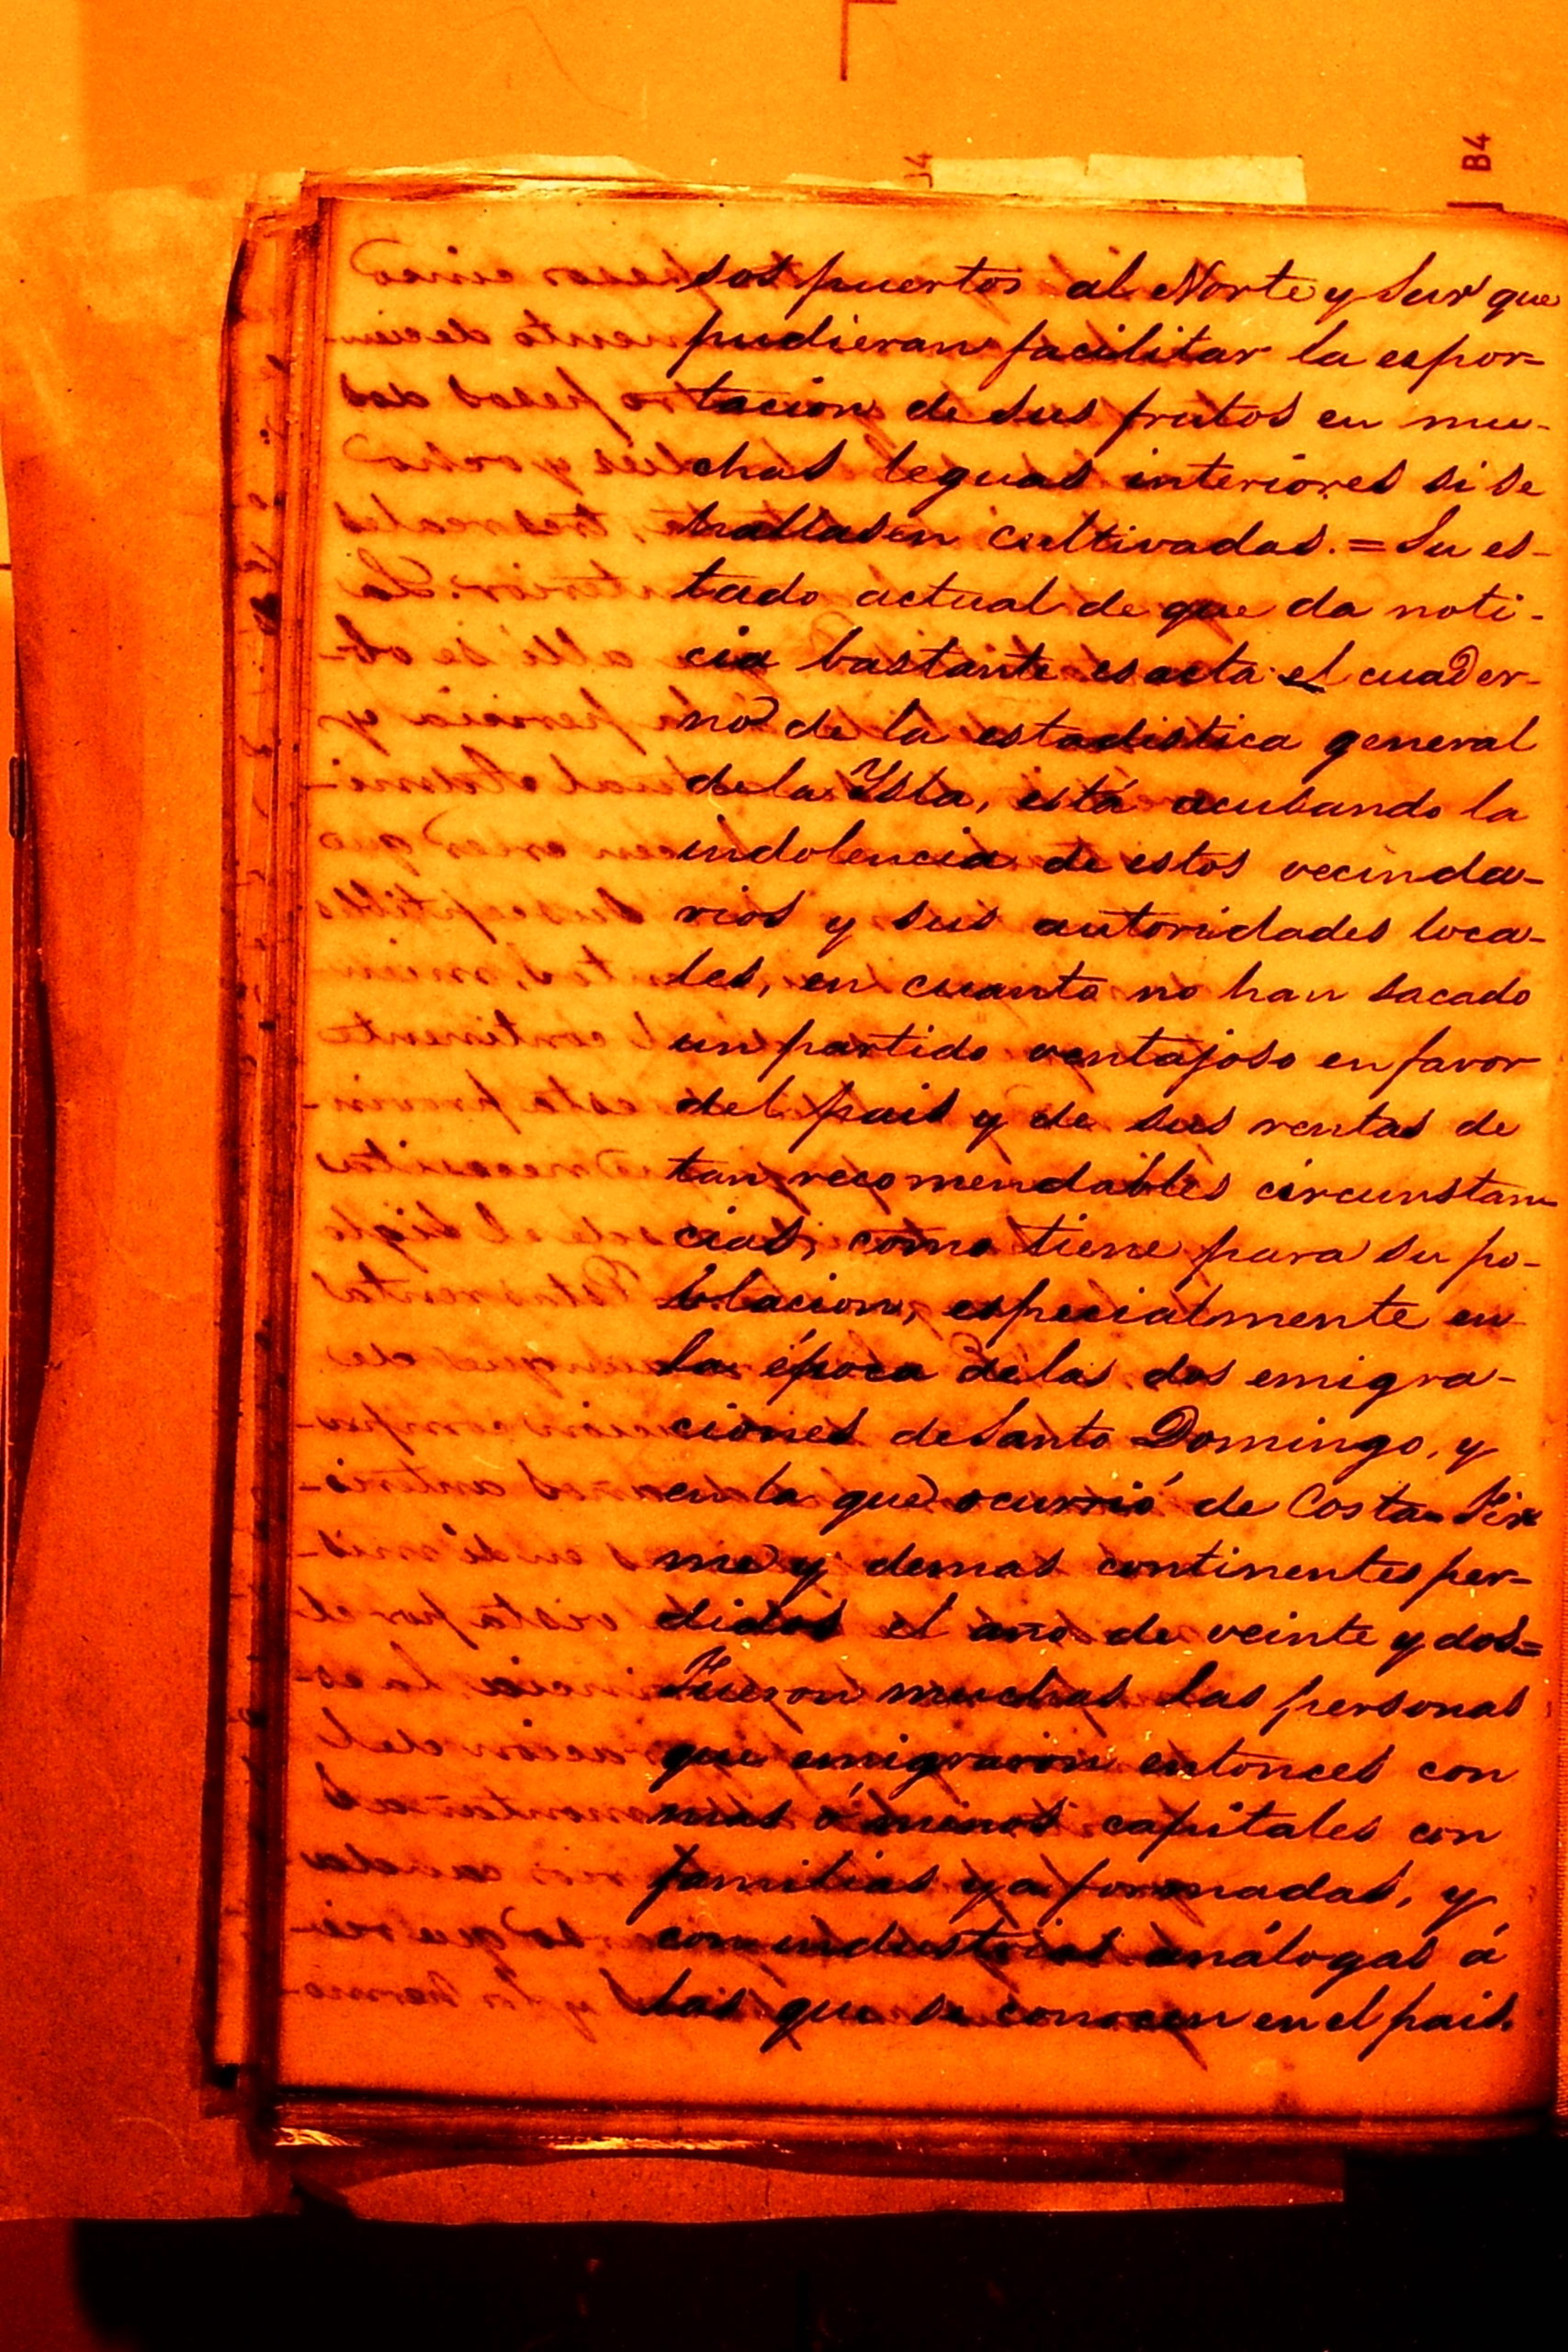 B4
sos puertos al Norte y Sur que
pudieran facilitar la espor=
tacion de sus frutos en mu-
chas leguas interiores si se
hallasen cultivadas. = Su es-
tado actual de que da noti-
cia bastante esacta el cuader-
no de la estadistica general
de la Ysla, está acusando la
indolencia de estos vecinda-
rios y sus autoridades loca-
les, en cuanto no han sacado
un partido ventajoso en favor
del pais y de sus rentas de
tan recomendables circunstan-
cias, como tiene para su po-
blacion, especialmente en
la época de las dos emigra-
ciones de Santo Domingo, y
en la que ocurrió de Costa Fir
me y demas continentes per-
didos el año de veinte y dos=
Fueron muchas las personas
que emigraron entonces con
mas ó menos capitales con
familias ya formadas, y
con industrias análogas á
las que se conocen en el pais.